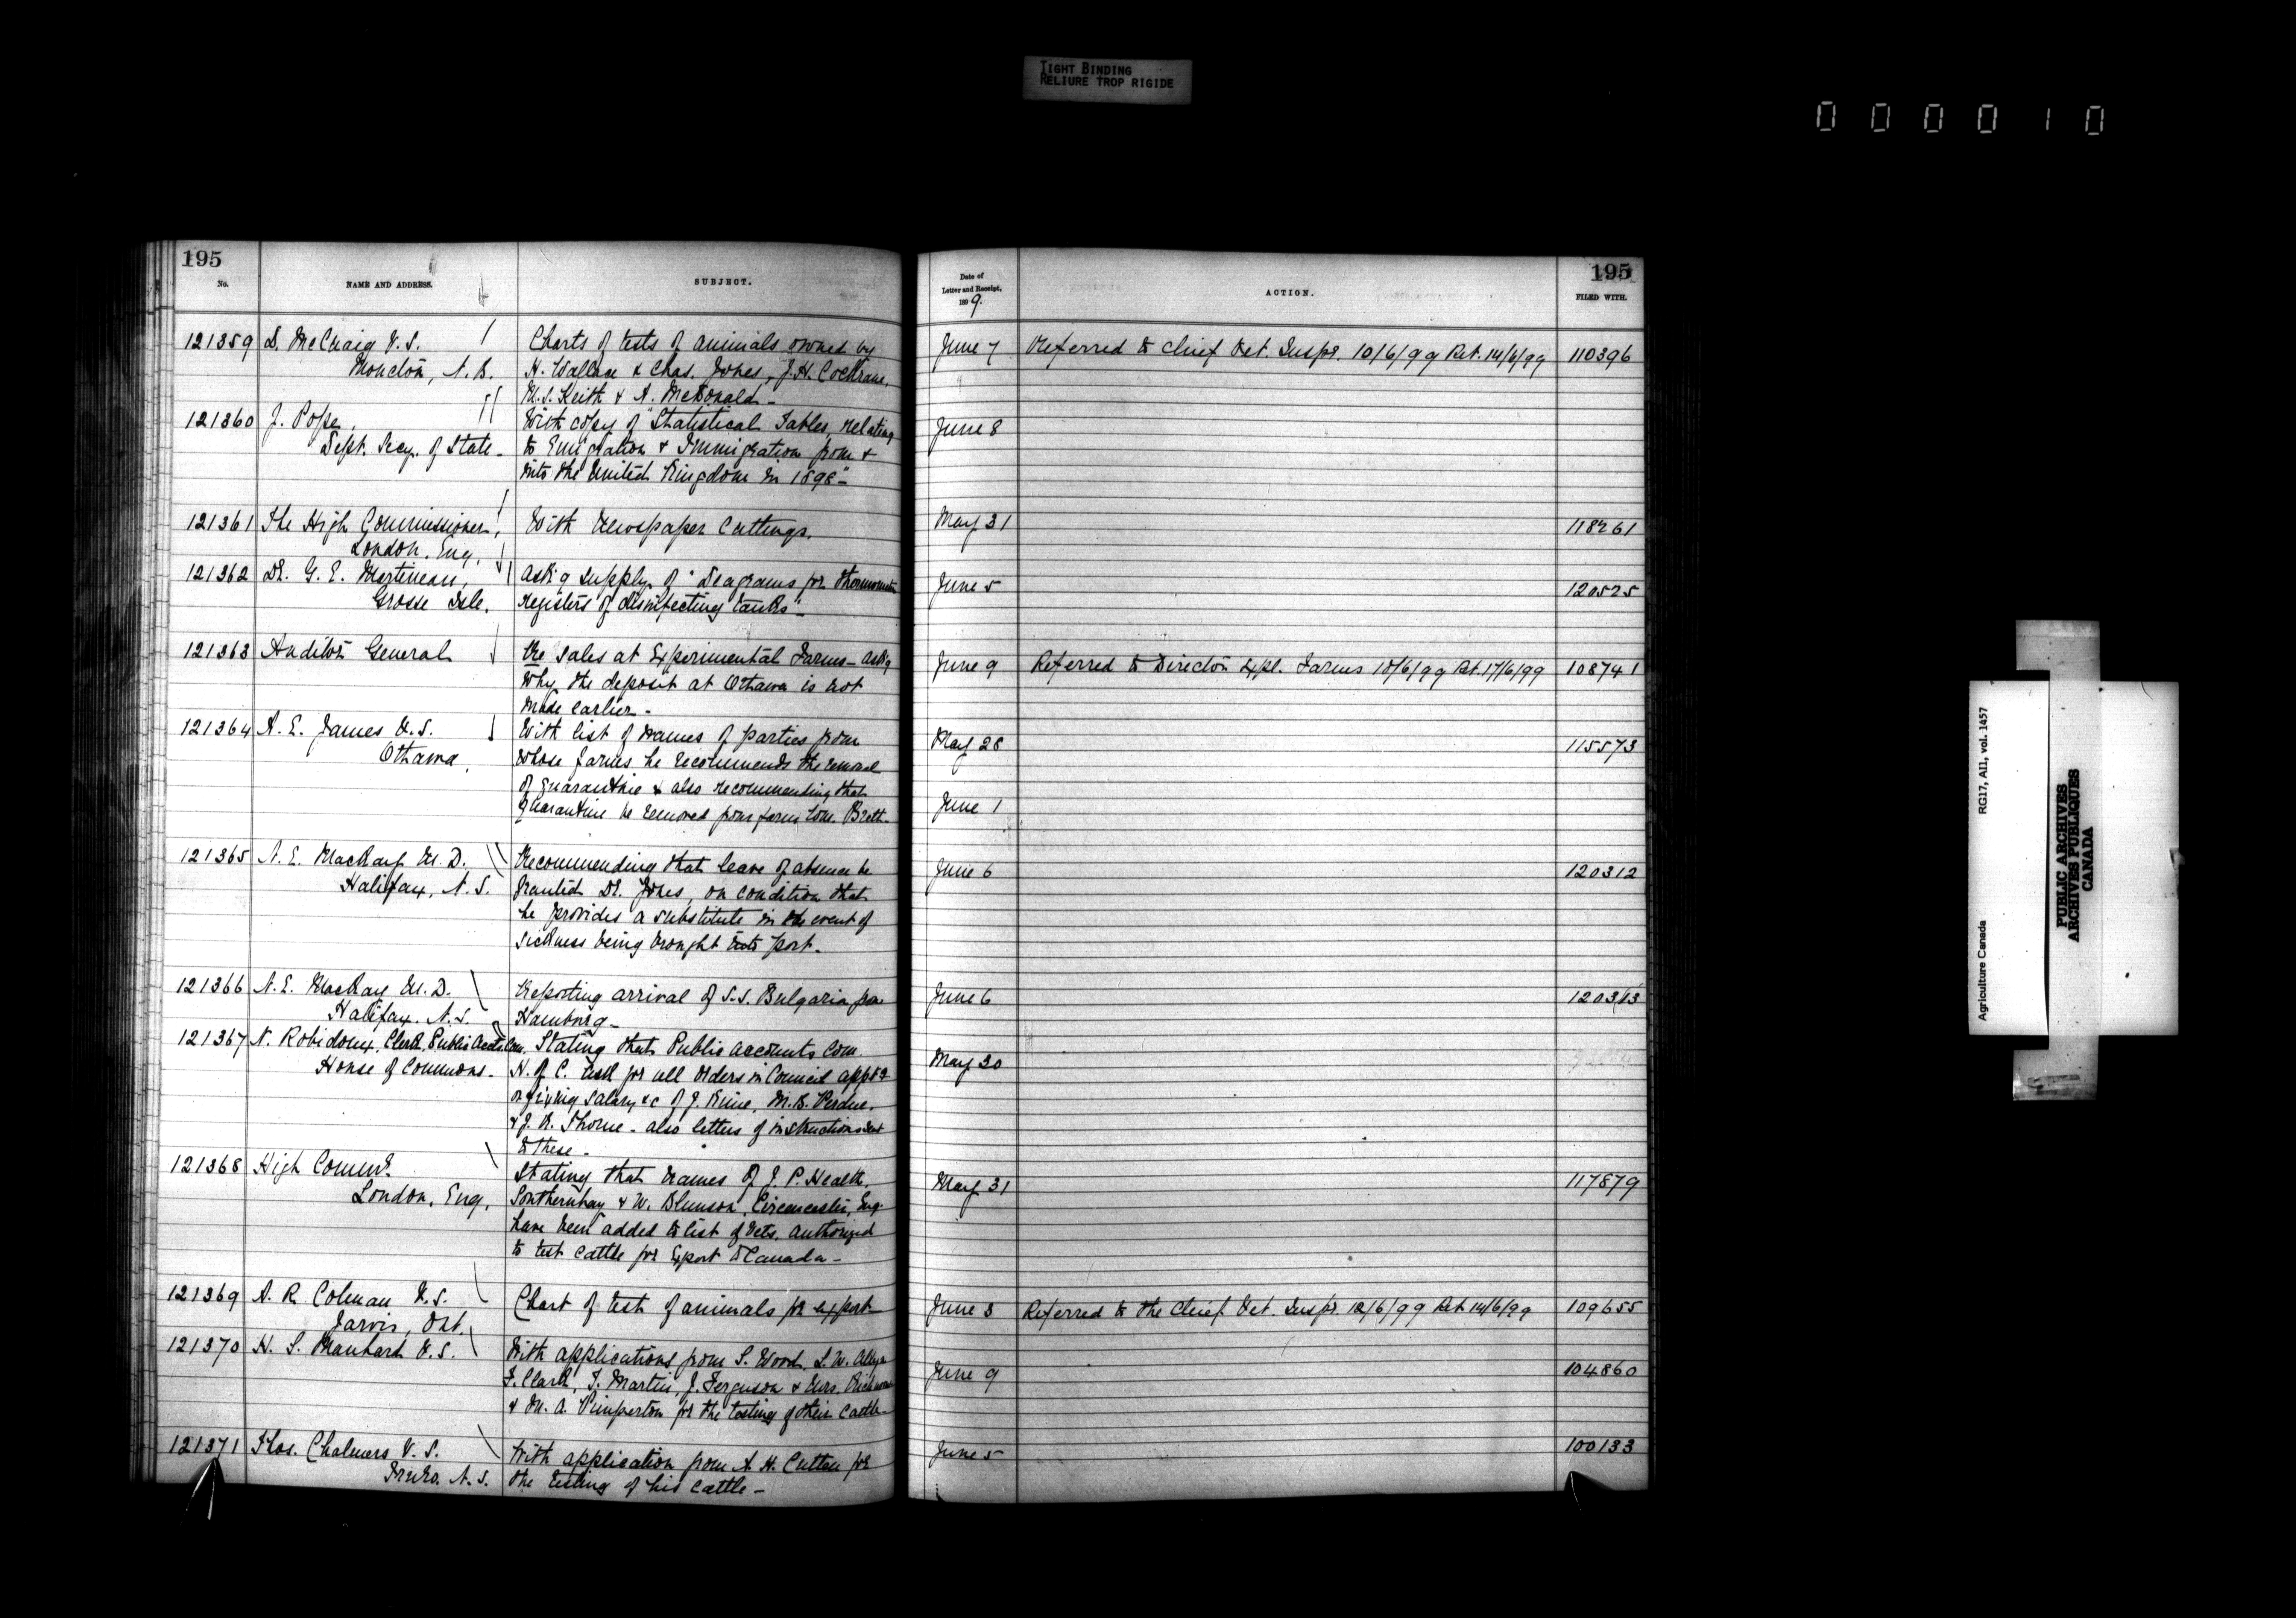 TIGHT BINDING
RELIURE TROP RIGIDE
000010
195
No.
NAME AND ADDRESS.
SUBJECT.
121359 D. McCuaig V.S.
Moncton, N.B.
Charts of tests of animals owned by
H. Wallace & Chas. Jones, J.H. Cochrane,
M.S. Keith & A. McDonald -
121360 J. Pope,
Dept. Secy. of State -
With copy of "Statistical Tables, relating
to Emigration & Immigration from &
into the United Kingdom in 1898" -
121361 The High Commissioner,
London, Eng.
With Newspaper Cuttings.
121362 Dr. G. E. Martineau,
Grosse Isle.
Ask'g supply of "Diagrams for thermometer
registers of disinfecting tanks" -
121363 Auditor General
Re sales at Experimental Farms - ask'g
why the deposit at Ottawa is not
made earlier -
121364 A. E. James V.S.
Ottawa,
With list of names of parties from
whose farms he recommends the removal
of quarantine & also recommending that
quarantine be removed from farm Tom. Breth-
121365 N. E. MacKay M.D.
Halifax, N.S.
Recommending that leave of absence be
granted Dr. Jones, on condition that
he provides a substitute in the event of
sickness being brought into port -
121366 N. E. MacKay M.D.
Halifax, N.S.
Reporting arrival of S.S. Bulgaria from
Hamburg -
121367 N. Robidoux, Clerk, Public Accts Com,
House of Commons -
Stating that Public Accounts Com.
H. of C. ask for all Orders in Council app't'g
or fixing salary &c of J. M.B. Perdue,
& J. R. Thorne - also letters of instructions sent
to these -
121368 High Commr.
London, Eng,
Stating that names of J. P. Heath,
Southernhay & W. Blunson, Cirencester, Eng.
have been added to list of Vets. authorized
to test cattle for Export to Canada -
121369 A. R. Colman V.S.
Jarvis, Ont.
Chart of test of animals for export
121370 H. S. Manhard V.S.
With applications from S. Wood, L. W.
T. Clark, T. Martin, J. Ferguson & Mrs.
& M. A. Pimperton for the testing of their cattle -
121371 Thos. Chalmers V.S.
Truro, N.S.
With application from A. H. Cutten for
the testing of his cattle -
195
Date of
Letter and Receipt,
1899.
ACTION.
FILED WITH.
June 7 Referred to Chief Vet. Inspr. 10/6/99 Ret. 14/6/99 110396
June 8
May 31 118261
June 5 120525
June 9 Referred to Director Expl. Farms 10/6/99 Ret. 17/6/99 108741
May 28 115573
June 1
June 6 120312
June 6 120313
May 30
May 31 117879
June 3 Referred to the Chief Vet. Inspr. 12/6/99 Ret 14/6/99 109655
June 9 104860
June 5 100133
Agriculture Canada RG17, AI1, vol. 1457
PUBLIC ARCHIVES
ARCHIVES PUBLIQUES
CANADA